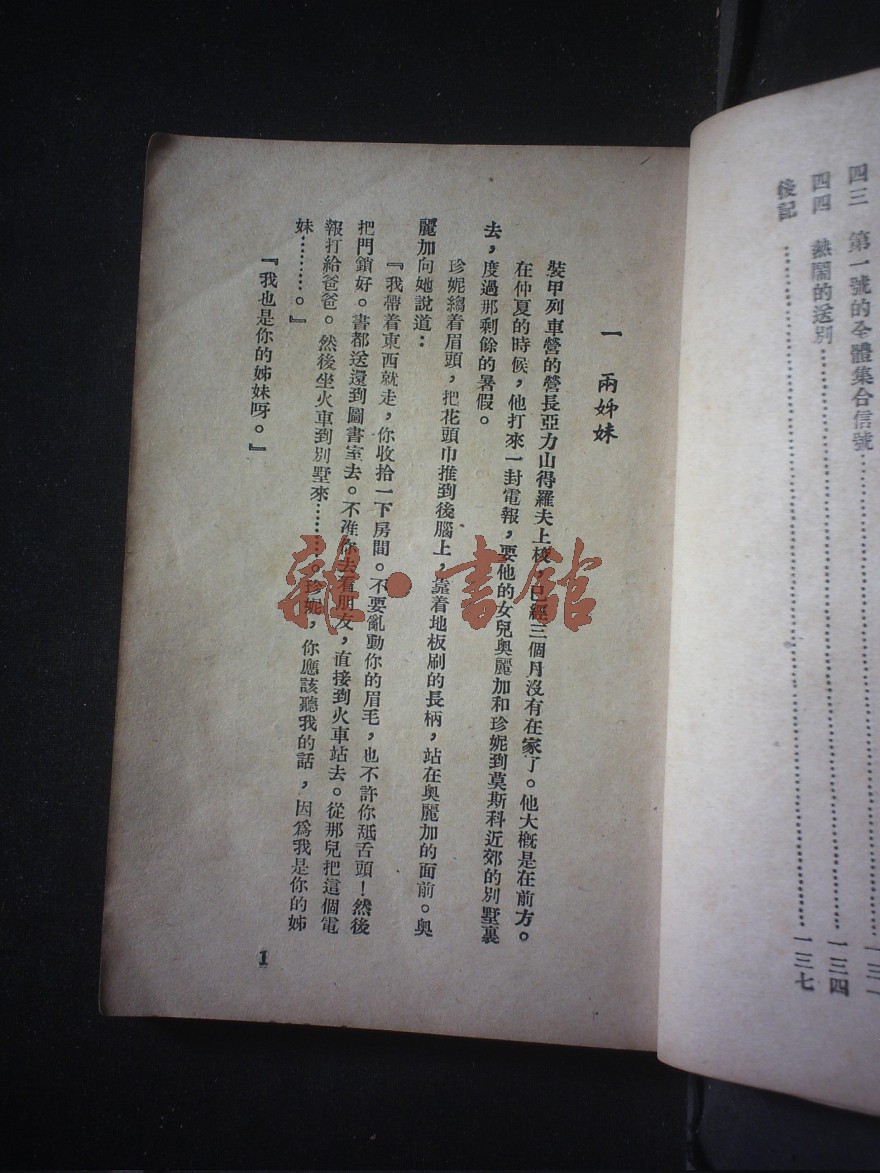 四三 第一號的全體集合信號
四四 熱鬧的送別 一三四
後記 一三七
一 兩姊妹
裝甲列車營的營長亞力山得羅夫上校，已經三個月沒有在家了。他大概是在前方。
在仲夏的時候，他打來一封電報，要他的女兒奧麗加和珍妮到莫斯科近郊的別墅裏
去，度過那剩餘的暑假。
珍妮縐着眉頭，把花頭巾推到後腦上，靠着地板刷的長柄，站在奧麗加的面前。奧
麗加向她說道：
『我帶着東西就走，你收拾一下房間。不要亂動你的眉毛，也不許你舐舌頭！然後
把門鎖好。書都送還到圖書室去。不准你去看朋友，直接到火車站去。從那兒把這個電
報打給爸爸。然後坐火車到別墅來………。珍妮，你應該聽我的話，因爲我是你的姊
妹………。』
『我也是你的姊妹呀。』
1
雜·書館